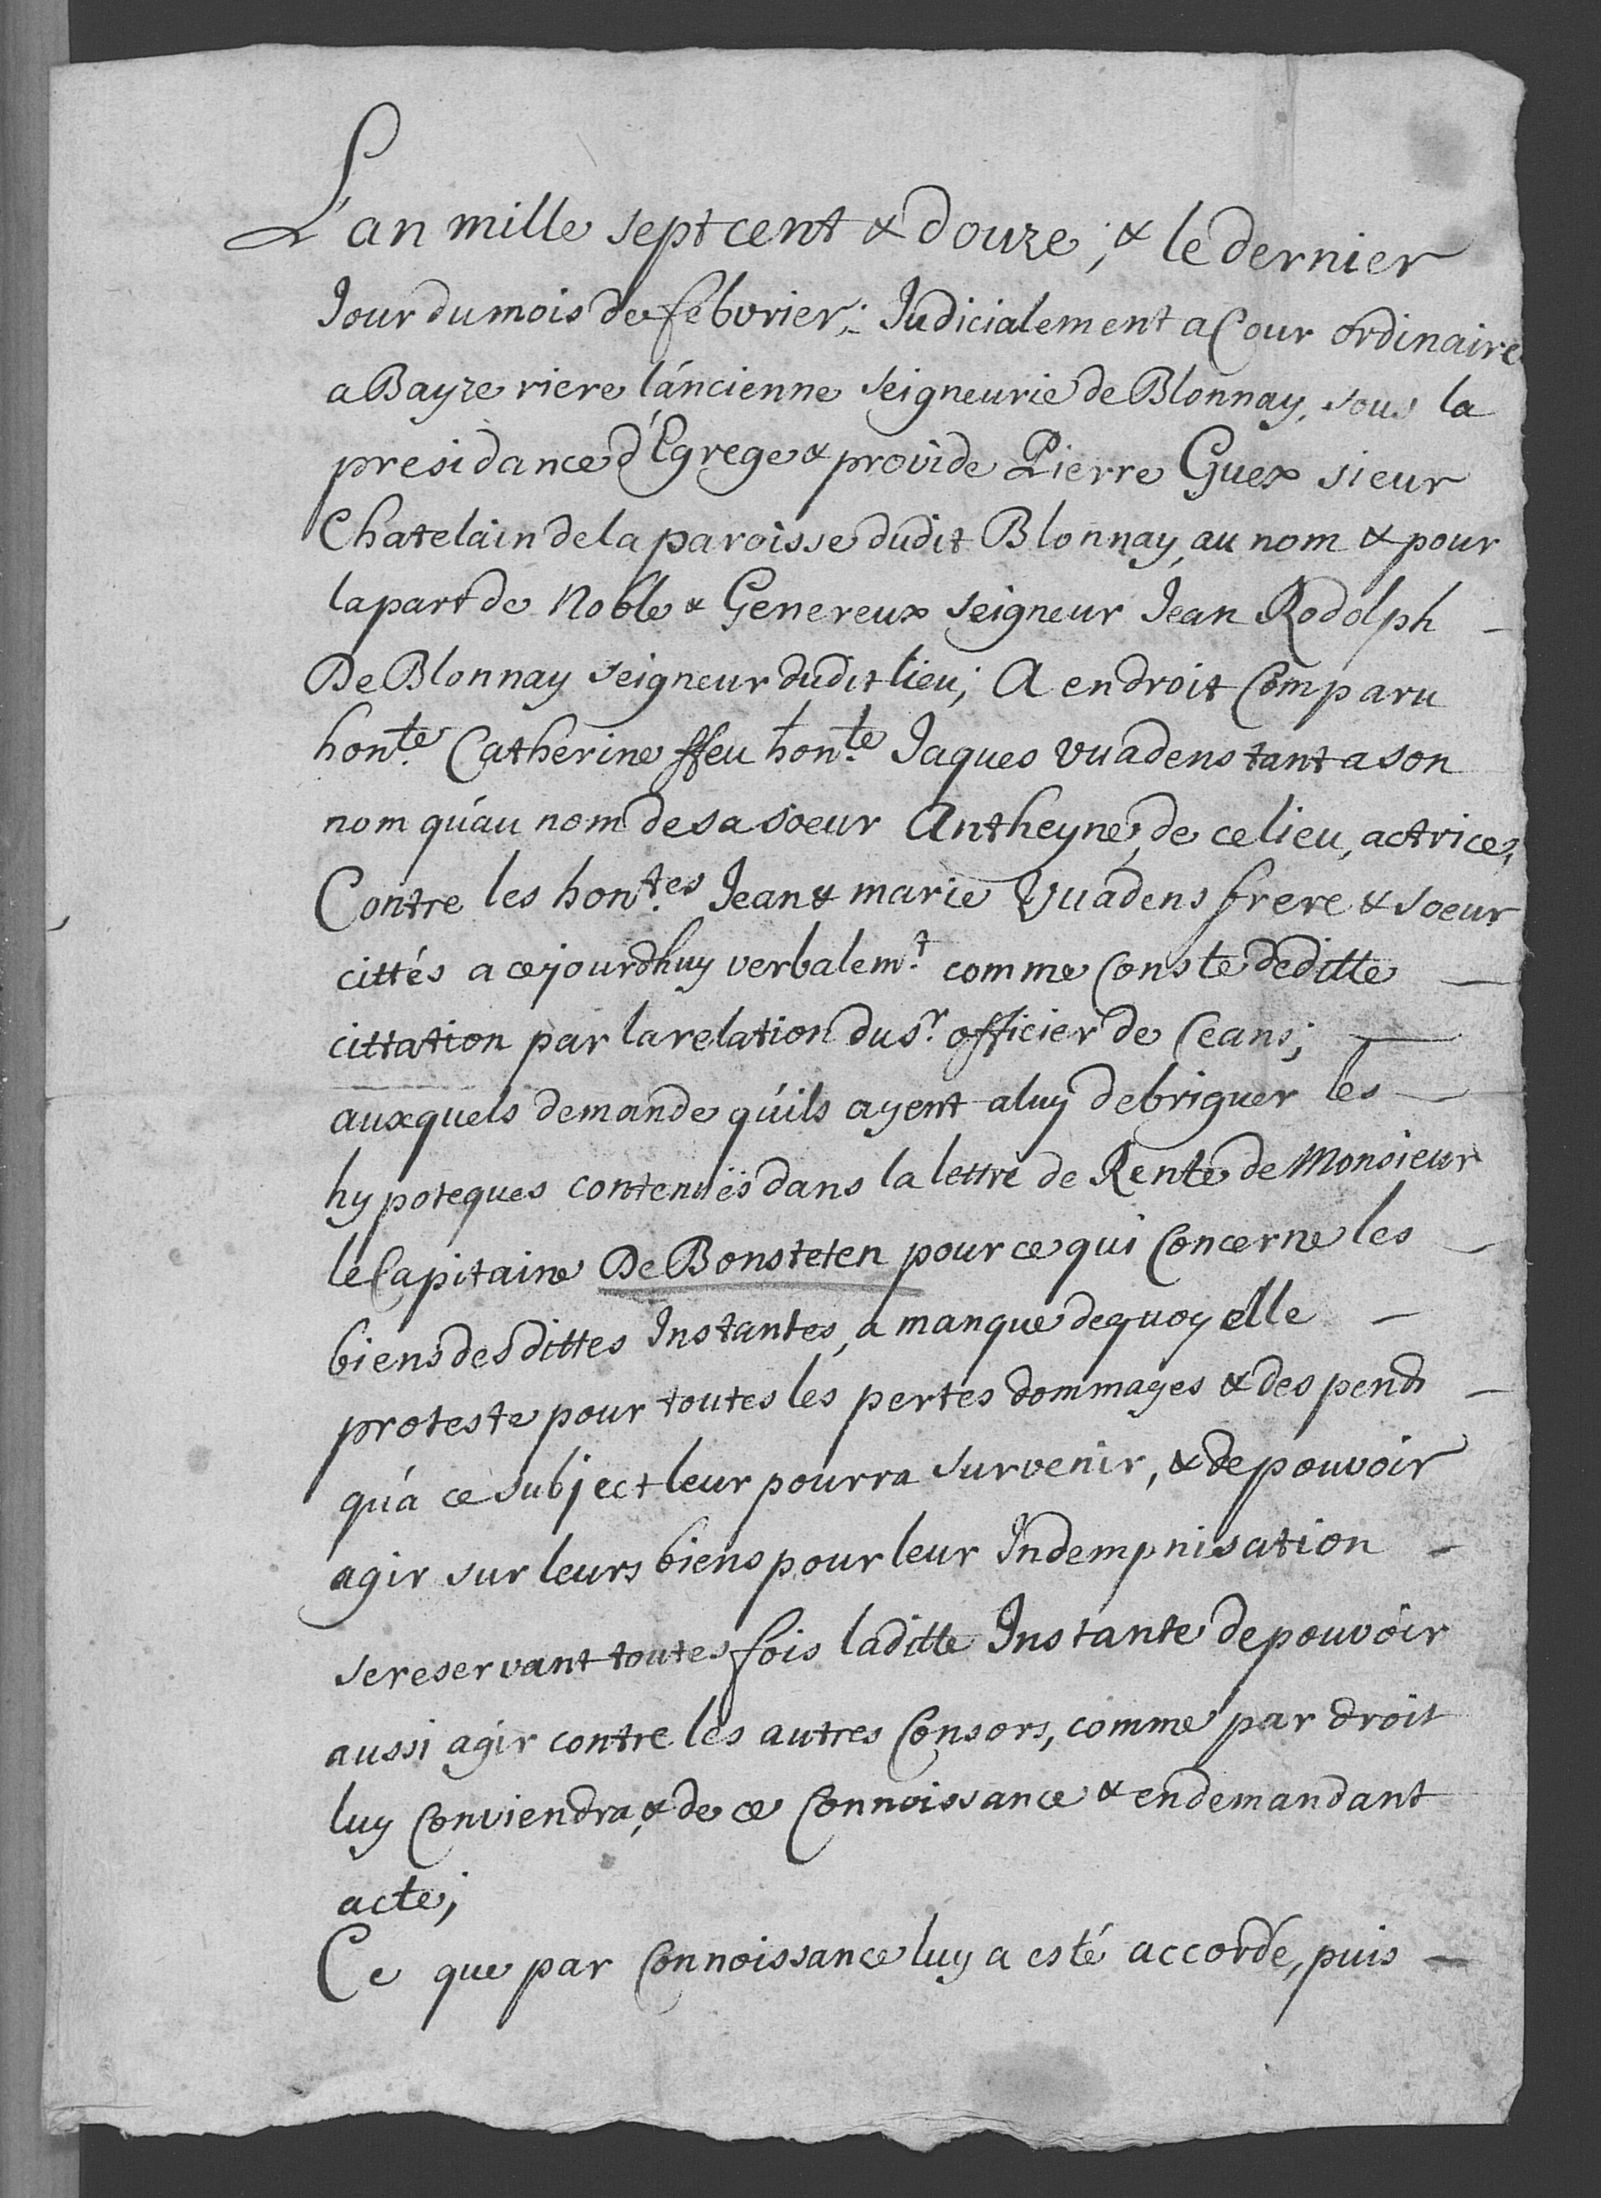 L'an mille sept cent & douze, & le dernier
Jour du mois de febvrier; Judicialement a Cour ordinaire
a Bayze riere l'ancienne seigneurie de Blonnay, sous la
presidance d'Egrege & provide Pierre Guex sieur
Chatelain de la paroisse dudit Blonnay, au nom & pour
la part de Noble & Genereux seigneur Jean Rodolph
De Blonnay seigneur dudit lieu; A en droit Comparu
hon.te Catherine ffeu hon.le Jaques Vuadens tant a son
nom qu'au nom de sa soeur Antheyne, de ce lieu, actrices,
Contre les hon.tes Jean & marie Vuadens frere & soeur
cittés a cejourdhuy verbalem.t comme Conste de ditte
cittation par la relation du s.r officier de Ceans;
auxquels demande qu'ils ayent a luy debriguer les
hypoteques contenuës dans la lettre de Rente de Monsieur
le Capitaine De Bonsteten pour ce qui Concerne les
biens desdittes Instantes, a manque dequoy elle
proteste pour toutes les pertes dommages & despends
qu'a ce subject leur pourra survenir, & de pouvoir
agir sur leurs biens pour leur Indempnisation
se reservant toutesfois laditte Instante de pouvoir
aussi agir contre les autres Consors, comme par droit
luy Conviendra, & de ce Connoissance & en demandant
acte;
Ce que par Connoissance luy a esté accordé, puis